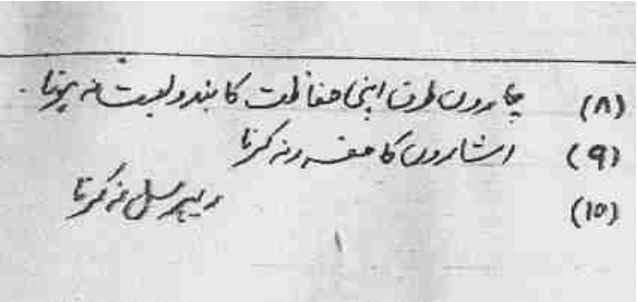 (۸) چاروں طرف اپنی حفاظت کا بندوبست نہ ہونا۔
(۹) اشاروں کا مقرر نہ کرنا
(۱۰) ریہرسل نہ کرنا